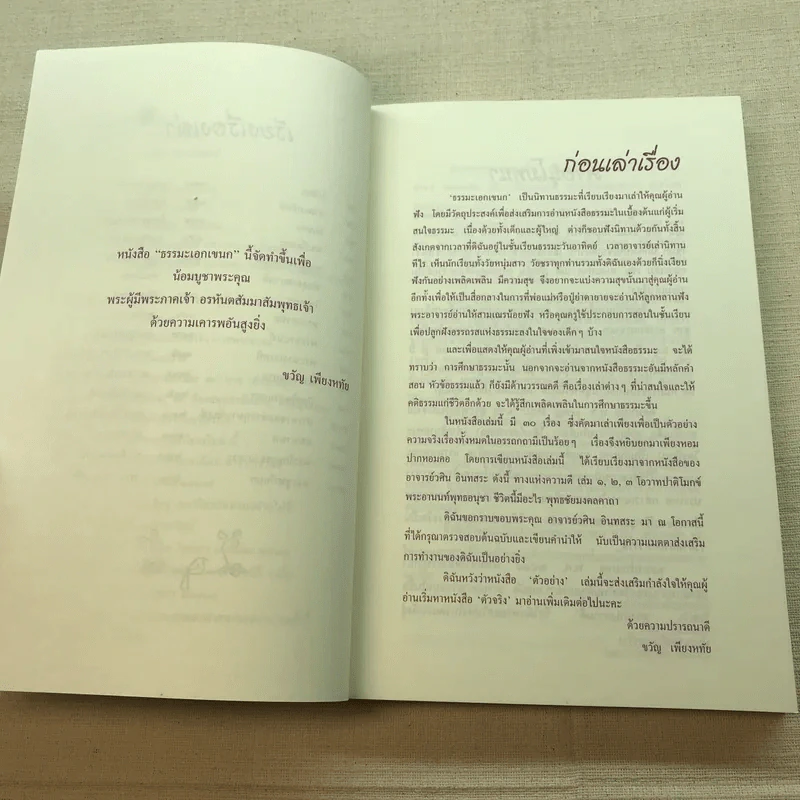 หนังสือ "ธรรมะเอกเขนก" นี้จัดทำขึ้นเพื่อ
น้อมบูชาพระคุณ
พระผู้มีพระภาคเจ้า อรหันตสัมมาสัมพุทธเจ้า
ด้วยความเคารพอันสูงยิ่ง
ขวัญ เพียงหทัย
ก่อนเล่าเรื่อง
'ธรรมะเอกเขนก' เป็นนิทานธรรมะที่เรียบเรียงมาเล่าให้คุณผู้อ่าน
ฟัง โดยมีวัตถุประสงค์เพื่อส่งเสริมการอ่านหนังสือธรรมะในเบื้องต้นแก่ผู้เริ่ม
สนใจธรรมะ เนื่องด้วยทั้งเด็กและผู้ใหญ่ ต่างก็ชอบฟังนิทานด้วยกันทั้งสิ้น
สังเกตจากเวลาที่ดิฉันอยู่ในชั้นเรียนธรรมะวันอาทิตย์ เวลาอาจารย์เล่านิทาน
ทีไร เห็นนักเรียนทั้งวัยหนุ่มสาว วัยชราทุกท่านรวมทั้งดิฉันเองด้วยก็นิ่งเงียบ
ฟังกันอย่างเพลิดเพลิน มีความสุข จึงอยากจะแบ่งความสุขนั้นมาสู่คุณผู้อ่าน
อีกทั้งเพื่อให้เป็นสื่อกลางในการที่พ่อแม่หรือปู่ย่าตายายจะอ่านให้ลูกหลานฟัง
พระอาจารย์อ่านให้สามเณรน้อยฟัง หรือคุณครูใช้ประกอบการสอนในชั้นเรียน
เพื่อปลูกฝังอรรถรสแห่งธรรมะลงในใจของเด็กๆ บ้าง
และเพื่อแสดงให้คุณผู้อ่านที่เพิ่งเข้ามาสนใจหนังสือธรรมะ จะได้
ทราบว่า การศึกษาธรรมะนั้น นอกจากจะอ่านจากหนังสือธรรมะอันมีหลักคำ
สอน หัวข้อธรรมแล้ว ก็ยังมีด้านวรรณคดี คือเรื่องเล่าต่างๆ ที่น่าสนใจและให้
คติธรรมแก่ชีวิตอีกด้วย จะได้รู้สึกเพลิดเพลินในการศึกษาธรรมะขึ้น
ในหนังสือเล่มนี้ มี ๓๐ เรื่อง ซึ่งคัดมาเล่าเพียงเพื่อเป็นตัวอย่าง
ความจริงเรื่องทั้งหมดในอรรถกถามีเป็นร้อยๆ เรื่องจึงหยิบยกมาเพียงหอม
ปากหอมคอ โดยการเขียนหนังสือเล่มนี้ ได้เรียบเรียงมาจากหนังสือของ
อาจารย์วศิน อินทสระ ดังนี้ ทางแห่งความดี เล่ม ๑, ๒, ๓ โอวาทปาติโมกข์
พระอานนท์พุทธอนุชา ชีวิตนี้มีอะไร พุทธชัยมงคลคาถา
ดิฉันขอกราบขอบพระคุณ อาจารย์วศิน อินทสระ มา ณ โอกาสนี้
ที่ได้กรุณาตรวจสอบต้นฉบับและเขียนคำนำให้ นับเป็นความเมตตาส่งเสริม
การทำงานของดิฉันเป็นอย่างยิ่ง
ดิฉันหวังว่าหนังสือ 'ตัวอย่าง' เล่มนี้จะส่งเสริมกำลังใจให้คุณผู้
อ่านเริ่มหาหนังสือ 'ตัวจริง' มาอ่านเพิ่มเติมต่อไปนะคะ
ด้วยความปรารถนาดี
ขวัญ เพียงหทัย